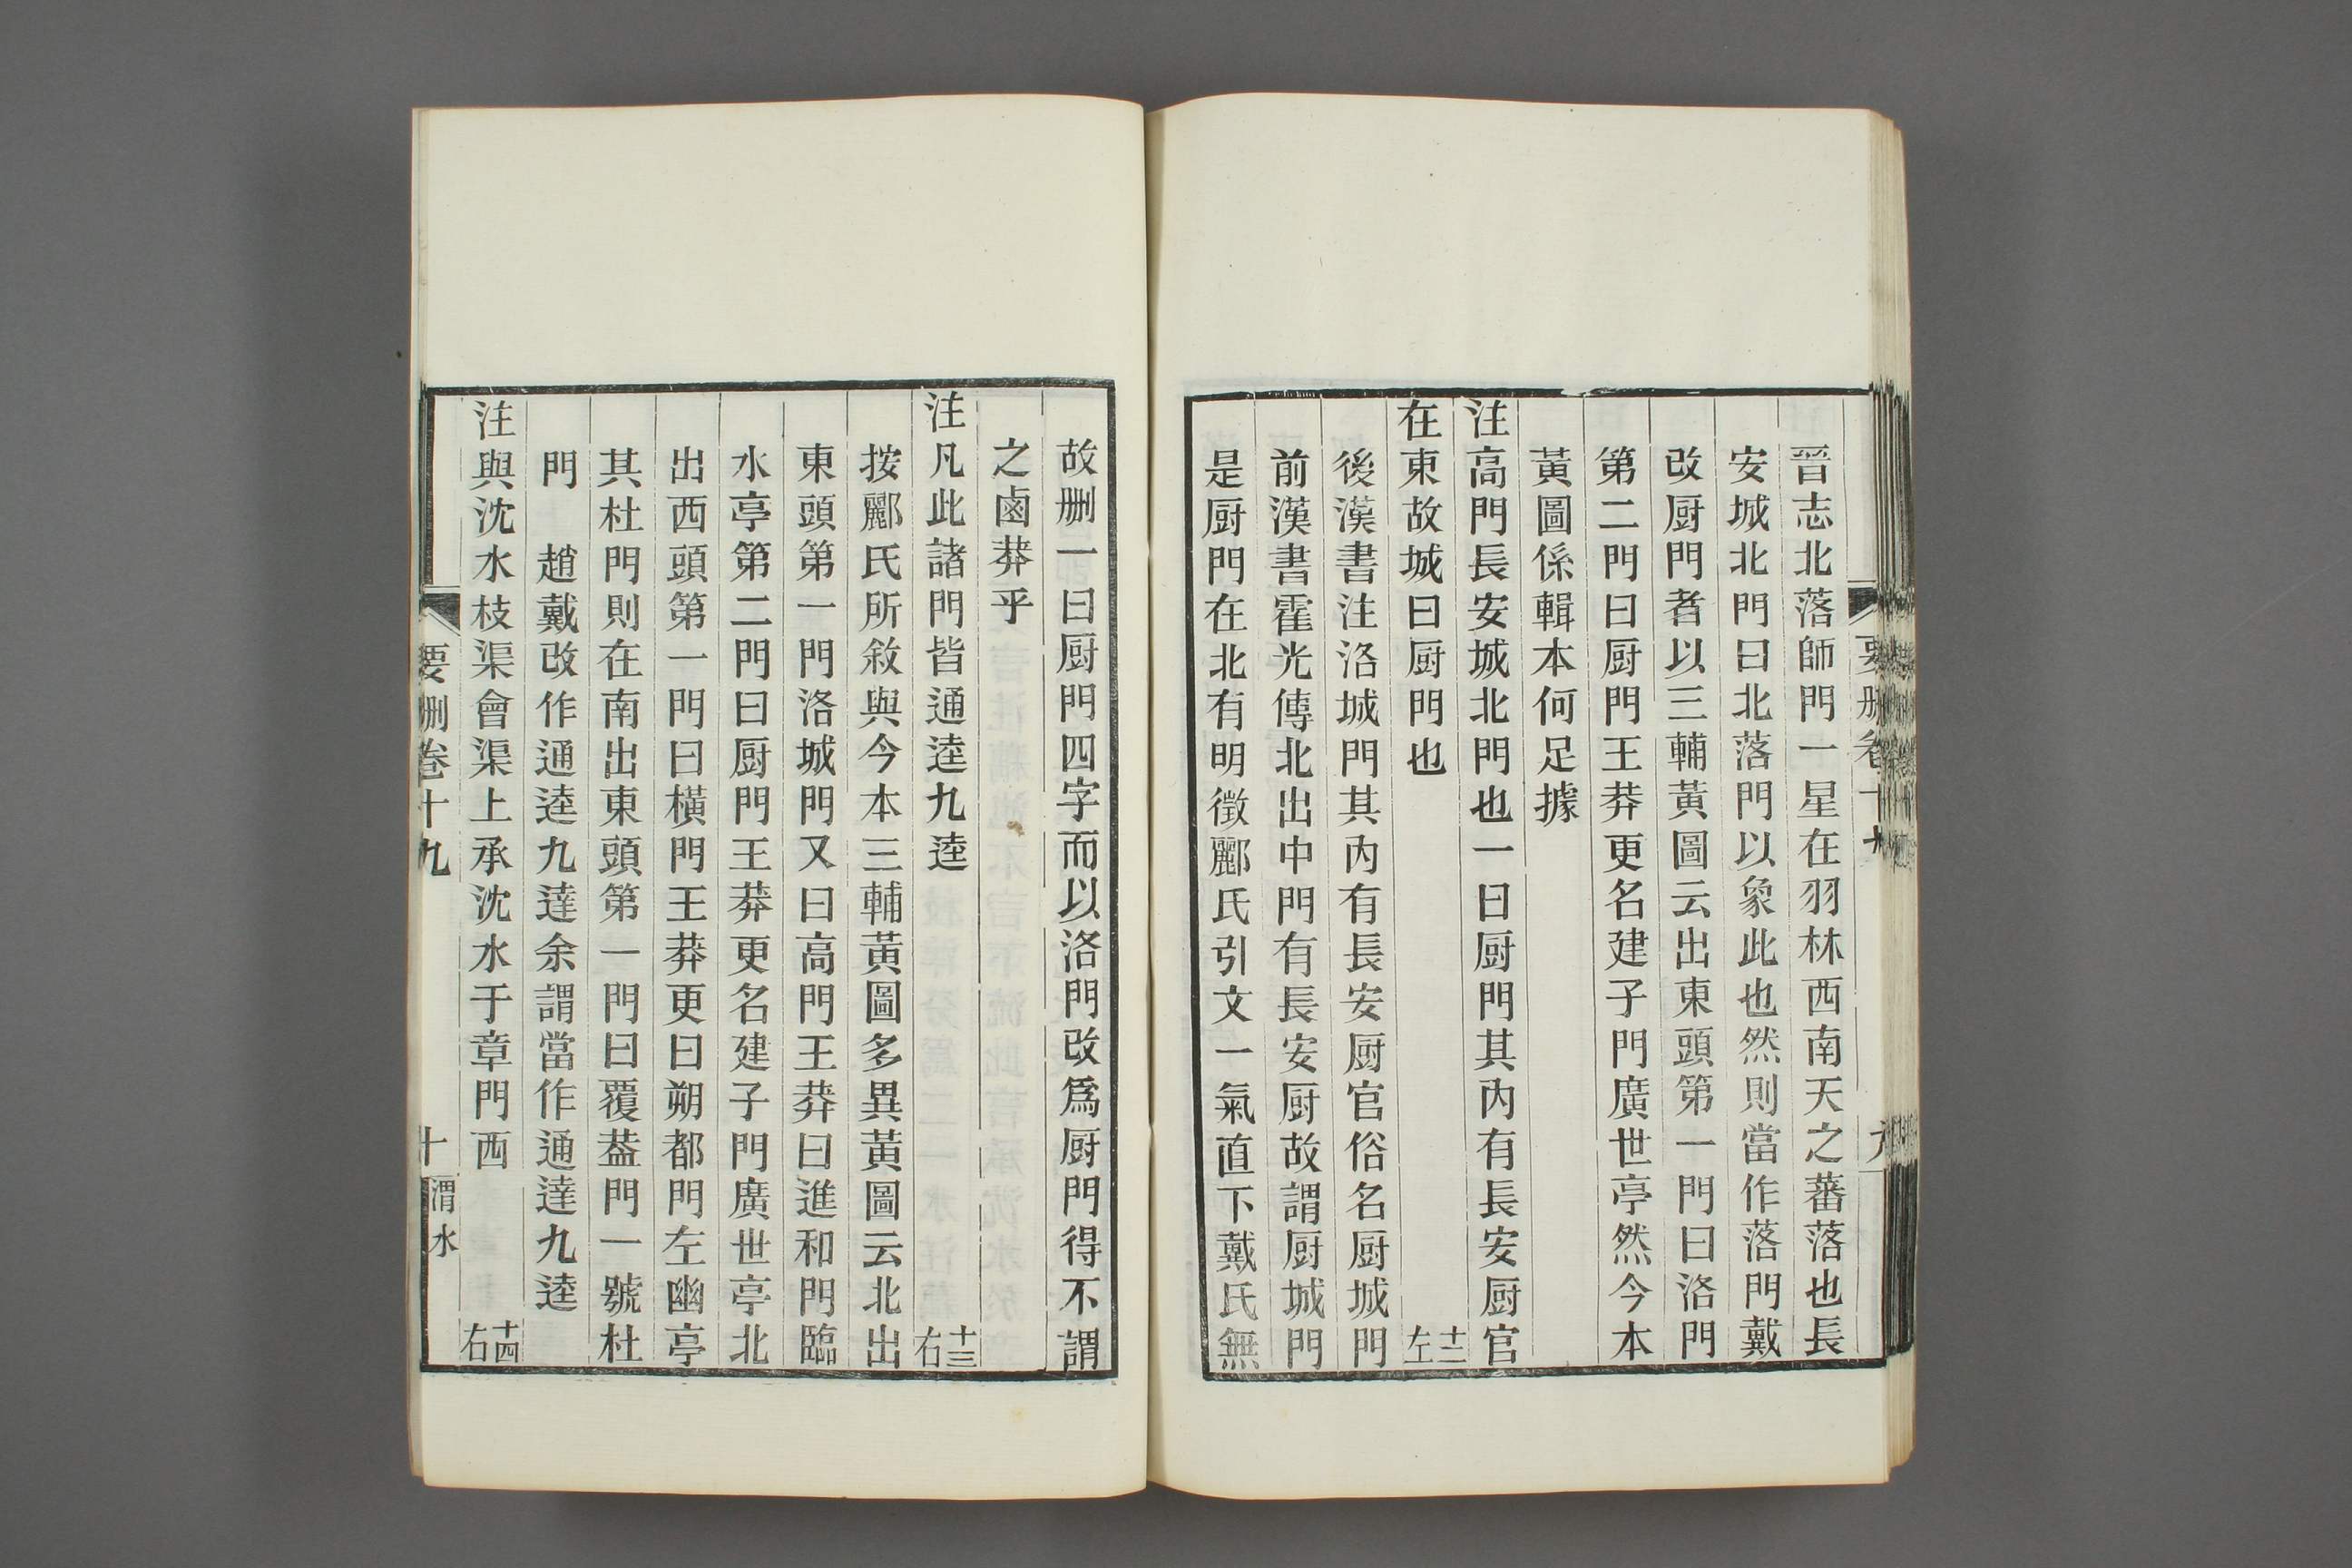 晉志北落師門一星在羽林西南天之蕃落也長
安城北門曰北落門以象此也然則當作落門戴
改厨門者以三輔黃圖云出東頭第一門曰洛門
第二門曰厨門王莽更名建子門廣世亭然今本
黃圖係輯本何足據
注高門長安城北門也一曰厨門其內有長安厨官
在東故城曰厨門也 十二左
後漢書注洛城門其內有長安厨官俗名厨城門
前漢書霍光傳北出中門有長安厨故謂厨城門
是厨門在北有明徵酈氏引文一氣直下戴氏無
故删一曰厨門四字而以洛門改爲厨門得不謂
之鹵莽乎
注凡此諸門皆通逵九逵 十三右
按酈氏所敘與今本三輔黃圖多異黃圖云北出
東頭第一門洛城門又曰高門王莽曰進和門臨
水亭第二門曰厨門王莽更名建子門廣世亭北
出西頭第一門曰橫門王莽更曰朔都門左幽亭
其杜門則在南出東頭第一門曰覆盎門一號杜
門 趙戴改作通逵九達余謂當作通達九逵
注與沈水枝渠會渠上承沈水于章門西 十四右
要删卷十九 十 渭水